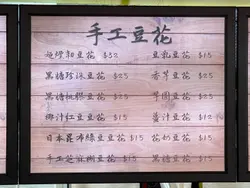 手工豆花
豆花 $32 豆乳豆花 $15
黑糖珍珠豆花 $25 香芋豆花 $25
黑糖桃膠豆花 $25 芋圓豆花 $25
椰汁紅豆豆花 $15 薑汁豆花 $12
日本昆布綠豆豆花 $15 花奶豆花 $15
手工芝麻糊豆花 $15 黑糖豆花 $15